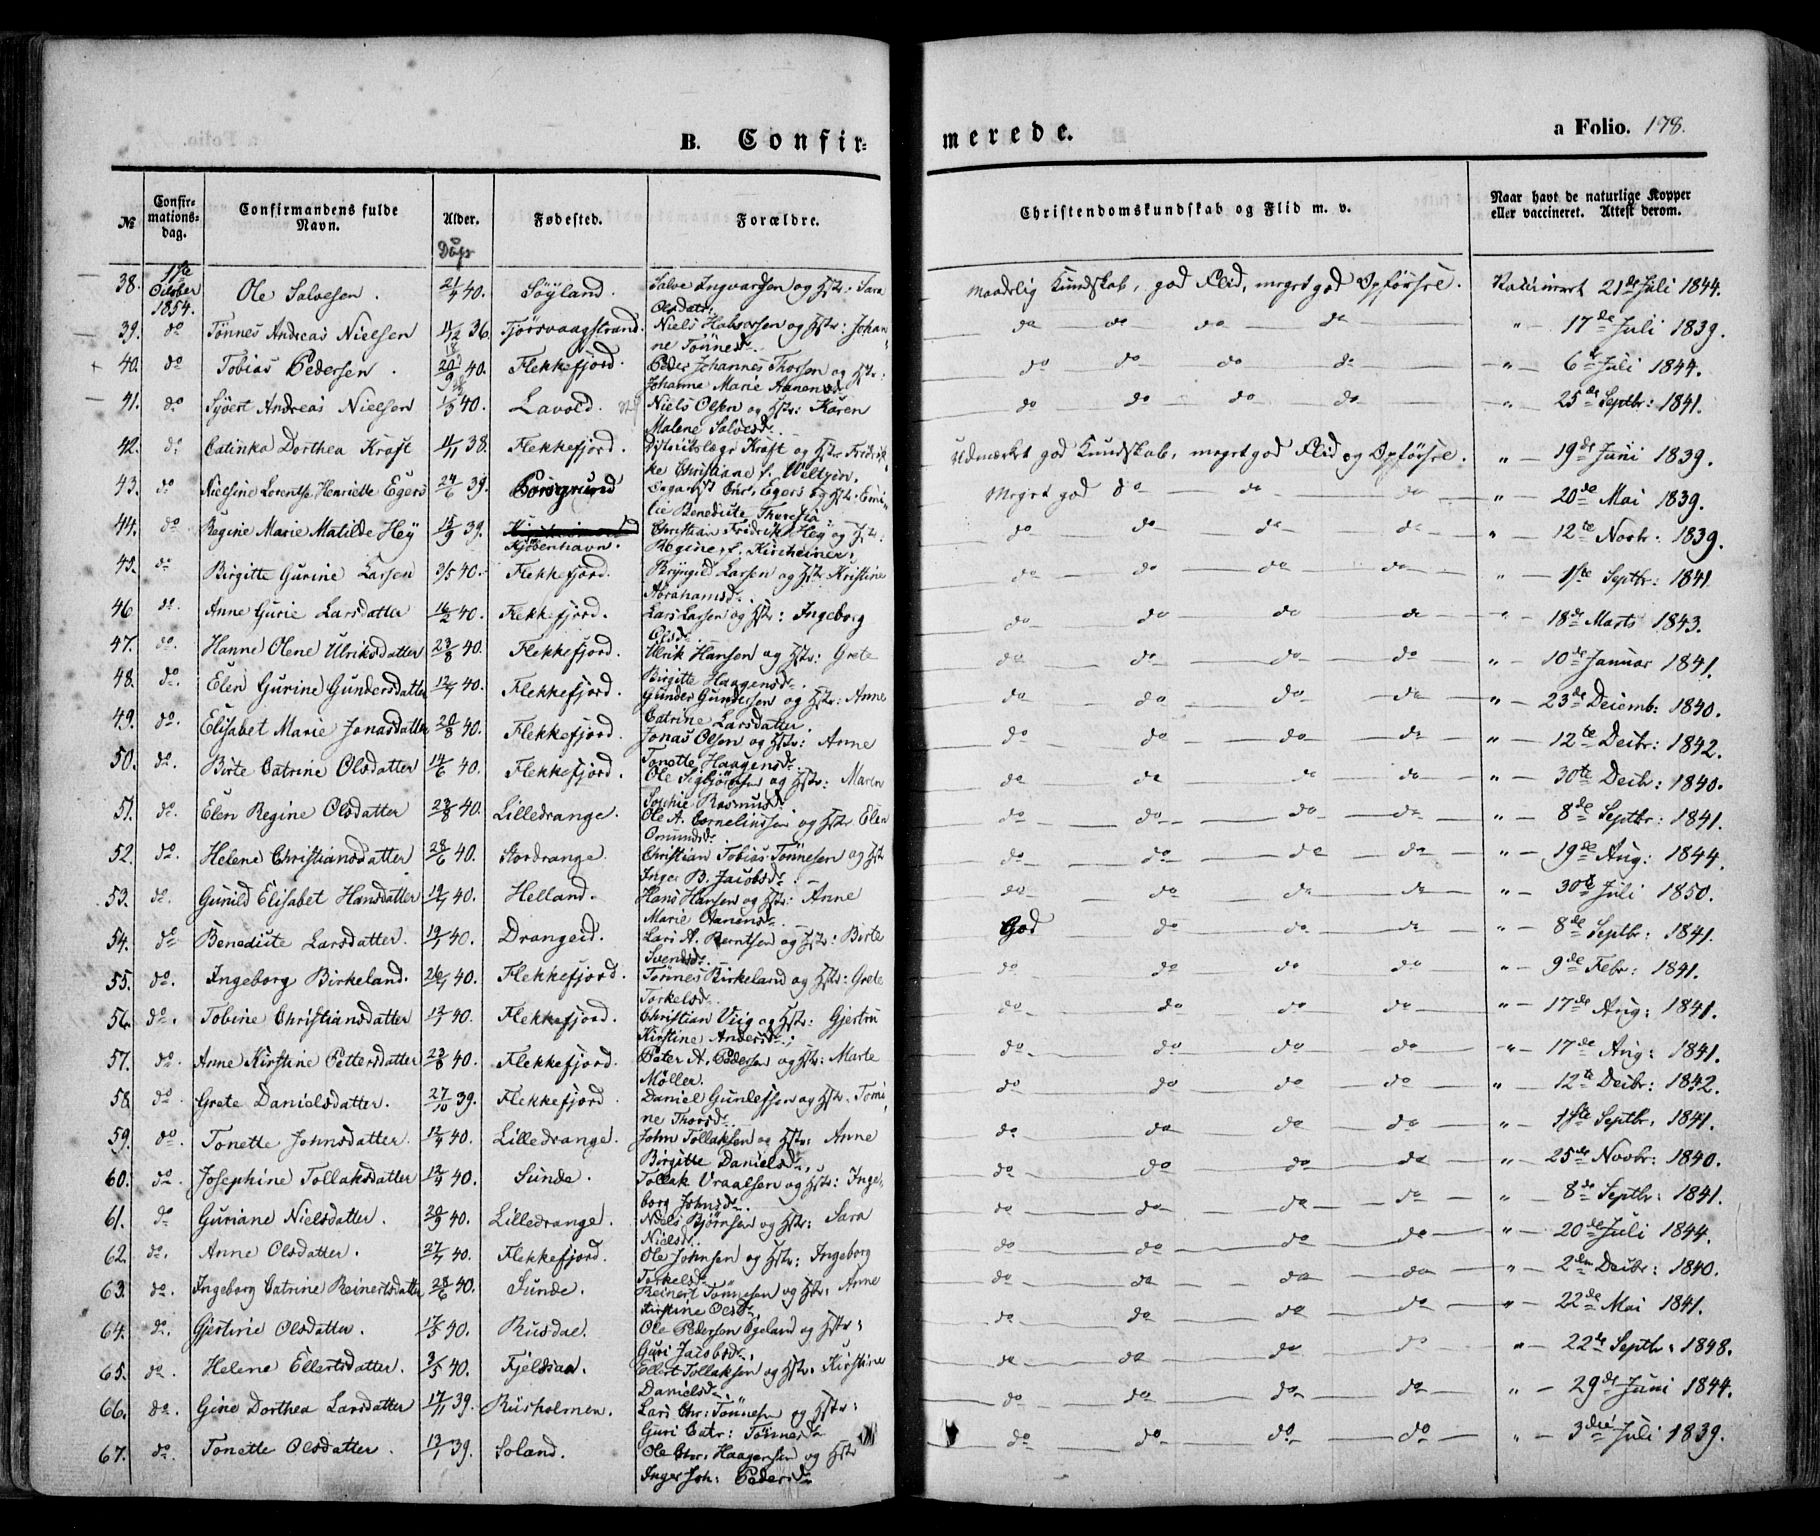 B. Confir-
merede.
a Folio. 178.
№ Confirmations-dag. Confirmandens fulde Navn. Alder. Fødested. Forældre. Christendomskundskab og Flid m. v. Naar havt de naturlige Kopper eller vaccineret. Attest derom.
Daab
38. 1ste October 1854. Ole Salvesen. 21/7 40. Søyland. Salve Ingvardsen og Hstr: Sara Olsdatr: Maadelig Kundskab, god Flid, meget god Opførsel. 21de Juli 1844.
39. do Tønnes Andreas Nielsen 11/12 36. Tjørsvaagstrand. Niels Johanne Tønnesd. do do do do " 17de Juli 1839.
40. do Tobias Pedersen. 20/9 40. Flekkefjord. Peder Johannes Thorsen og Hstr: Johanne Marie do do do do " 6te Juli 1844.
41. do Syvert Andreas Nielsen 40. Lavold. Niels Olsen og Hstr: Karen Malene Salvesd. do do do do " 25de Septbr: 1841.
42. do Catinka Dorthea Kraft 11/11 38. Flekkefjord. Districtslæge Kraft og Hstr Fredrikke Christiane f. Udmærket god Kundskab, meget god Flid og Opførsel. " 19de Juni 1839.
43. do Nielsine Lorentse Henriette Egers 24/6 39. Porsgrund Organist Chr. Egers og Hstr: Emilie Benedicte Theresia. Meget god do do do " 20de Mai 1839.
44. do Regine Marie Matilde Hey 15/9 39. Kjøbenhavn. Christian Fridrik Hey og Hstr: Regine f. Kircheiner. do do do do " 12te Novbr: 1839.
45. do Birgitte Gurine Larsen 3/5 40. Flekkefjord. Bryngild Larsen og Hstr Kristine Abrahamsd. do do do do " 1ste Septbr: 1841.
46 do. Anne Gurie Larsdatter 16/2 40. Flekkefjord. Lars Larsen og Hstr: Ingeborg Olsd. do do do do " 18de Marts 1843.
47. do. Hanne Olene Ulriksdatter 23/8 40. Flekkefjord. Ulrik Hansen og Hstr: Grete Birgitte Haagensd. do do do do " 10de Januar 1841.
48. do. Elen Gurine Gundersdatter 12/7 40. Flekkefjord. Gunder Gundersen og Hstr: Anne Catrine Larsdatter do do do do " 23de Deiemb: 1840.
49. do. Elisabet Marie Jonasdatter 20/8 40. Flekkefjord. Jonas Olsen og Hstr: Anne Tonette Haagensd. do do do do " 12te Decbr: 1842.
50. do. Birte Catrine Olsdatter 14/6 40. Flekkefjord. Ole Sigbjørnsen og Hstr: Maren Sophie Rasmusd. do do do do " 30te Decbr: 1840.
51. do. Elen Regine Olsdatter 23/8 40. Lilledrange. Ole A. Corneliussen og Hstr Elen Omundsd. do do do do " 8de Septbr: 1841.
52. do. Helene Christiansdatter 28/6 40. Stordrange. Christian Tobias Tønnesen og Hstr Inger B. Jacobsd. do do do do " 19de Aug: 1844.
53. do. Gunild Elisabet Hansdatter 19/7 40. Helland. Hans Hansen og Hstr: Anne Marie do do do do " 30te Juli 1850.
54. do Benedicte Larsdatter. 19/7 40. Drangeid. Lars A. Berntsen og Hstr: Birte Svendsd. God do do do " 8de Septbr: 1841.
55. do. Ingeborg Birkeland. 26/7 40. Flekkefjord. Tønnes Birkeland og Hstr: Grete Torkelsd. do do do do " 9de Febr: 1841.
56. do. Tobine Christiansdatter 13/7 40. Flekkefjord. Christian Viig og Hstr: Gjertru Kirstine Andersd. do do do do " 17de Aug: 1841.
57. do. Anne Kirstine Pettersdatter 23/8 40. Flekkefjord. Peter A. Pedersen og Hstr: Marte Møller. do do do do " 17de Aug: 1841.
58. do Grete Danielsdatter. 27/10 39. Flekkefjord. Daniel Gunlefsen og Hstr: Tomine Thorsd. do do do do " 12te Decbr: 1842.
59. do. Tonette Johnsdatter. 40. Lilledrange. John Tollaksen og Hstr: Anne Birgitte Danielsd. do do do do " 1ste Septbr: 1841.
60. do. Josephine Tollaksdatter 40. Sunde. Tollak Vraalsen og Hstr: Ingeborg Johnsd. do do do do " 25de Novbr: 1840.
61. do Guriane Nielsdatter. 20/9 40. Lilledrange. Niels Bjørnsen og Hstr: Sara Nielsd. do do do do " 8de Septbr: 1841.
62. do. Anne Olsdatter. 27/7 40. Flekkefjord. Ole Johnsen og Hstr: Ingeborg Torkelsd. do do do do " 20de Juli 1844.
63. do. Ingeborg Catrine Reinertsdatter 28/6 40. Sunde. Reinert Tønnesen og Hstr: Anne Kirstine Olsd. do do do do " 2den Decbr: 1840.
64. do. Gjertine Olsdatter. 17/5 40. Rusdal. Ole Pedersen Egeland og Hstr: Guri Jacobsd. do do do do " 22de Mai 1841.
65. do. Helene Ellertsdatter. 3/5 40. Fjeldsaa. Ellert Tollaksen og Hstr: Kirstine Danielsd. do do do do " 22de Septbr: 1848.
66. do. Gine Dorthea Larsdatter 17/11 39. Rusholmen. Lars Chr: Tønnesen og Hstr: Guri Catr: Tønnesd. do do do do " 29de Juni 1844.
67. do. Tonette Olsdatter. 13/7 39. Soland. Ole Chr. Haagensen og Hstr Inger Joh: Pedersd. do do do do " 3die Juli 1839.